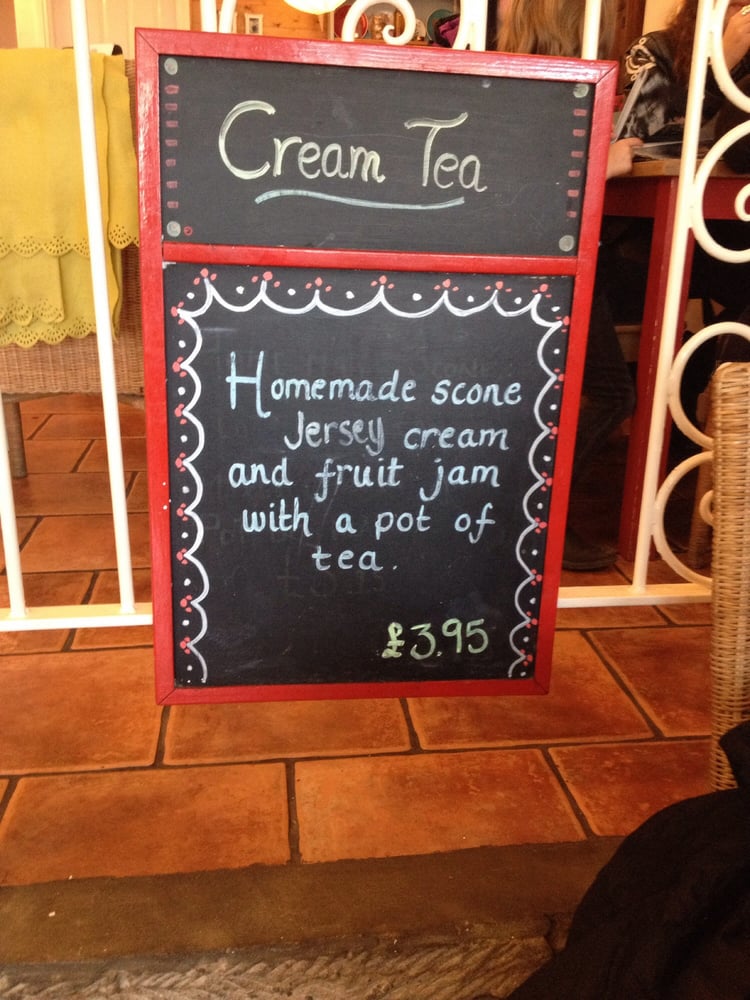 Cream Tea
Homemade scone
Jersey cream
and fruit jam
with a pot of
tea.
£3.95